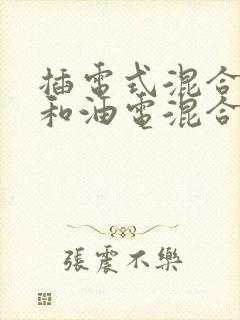 插電式混合
和油電混合
張震不樂